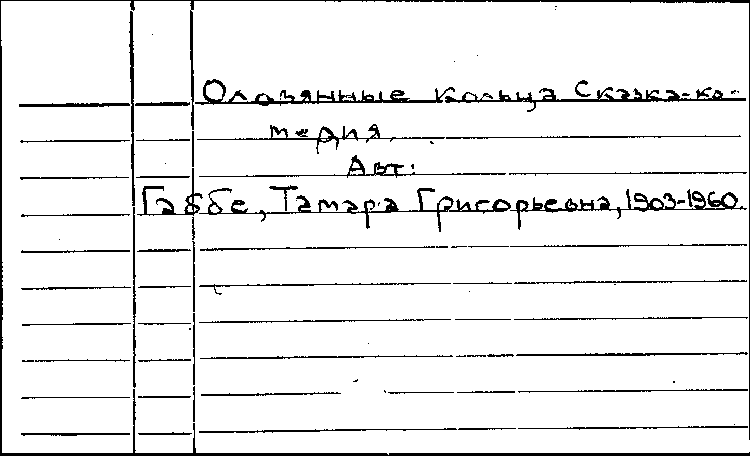 Оловянные кольца Сказка-ко-
медия.
Авт:
Габбе, Тамара Григорьевна, 1903-1960.